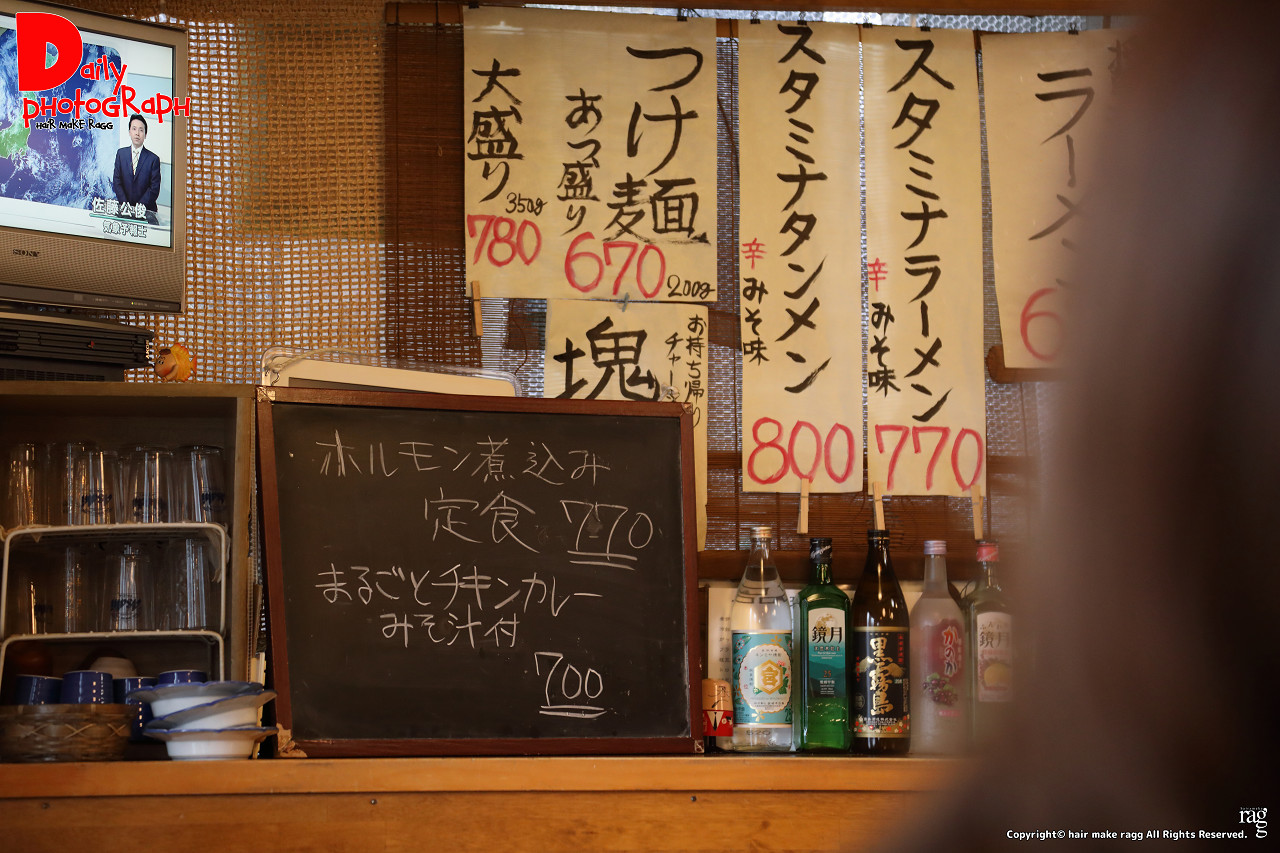 Daily
PhotoGRaPH
HaiR MaKE RaGG
佐藤公俊
気象予報士
SONY
大盛り
350g
780
あつ盛り
つけ麺
670
200g
スタミナタンメン
辛
みそ味
800
スタミナラーメン
辛
みそ味
770
ラーメン
塊
お持ち帰り
チャー
ホルモン煮込み
定食 770
まるごとチキンカレー
みそ汁付
700
鏡月
黒霧島
かのか
鏡月
rag
Copyright© hair make ragg All Rights Reserved.